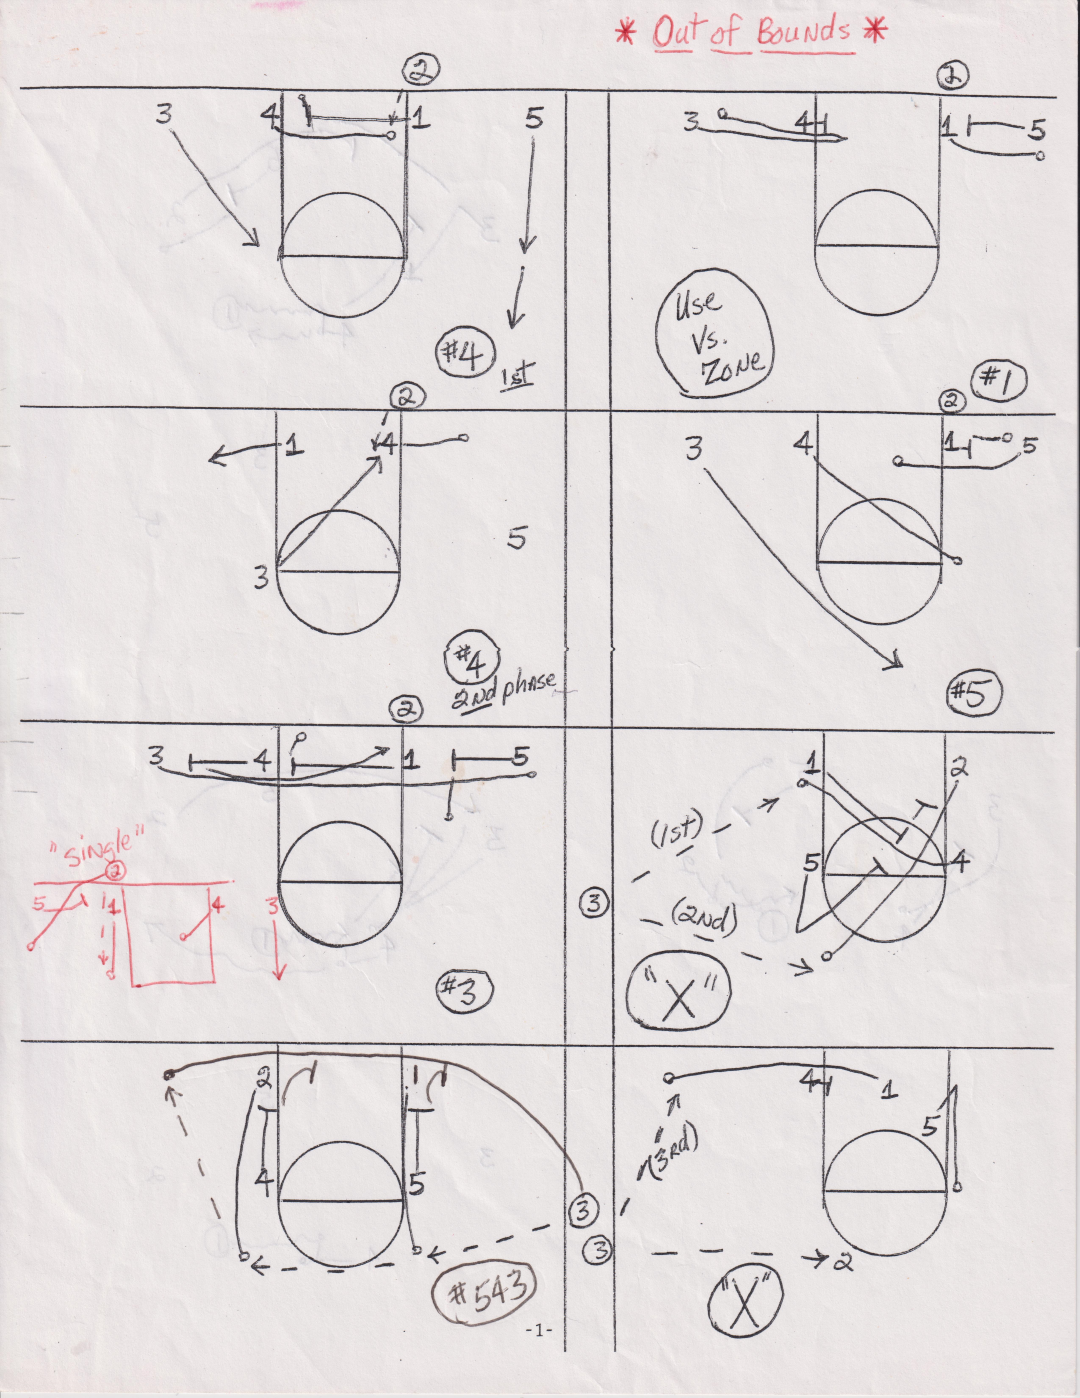 * Out of Bounds *
2
3 4 1 5
#4
1st
2
3 4 1 5
Use
Vs.
ZONE
#1
2
1 4
5
3
#4
2nd phase
2
3 4 1 5
#5
2
3 4 1 5
#3
"single"
2
5 1 4 3
1 2
(1st)
5 4
3
(2nd)
"X"
2 1
4 5
3
#543
4 1
5
(3rd)
3
2
"X"
-1-